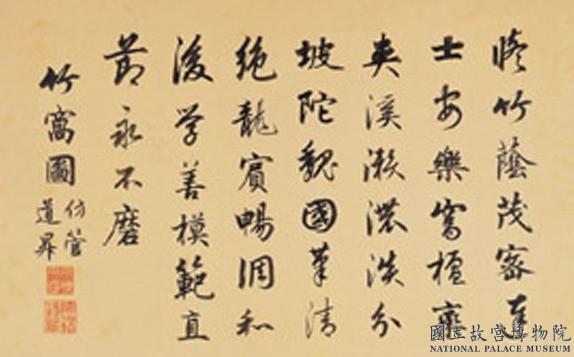 脩竹蔭茂密高
士安樂窩檀欒
夾溪瀨濃淡分
坡陀魏國筆清
絶龍賓暢調和
後学善模範直
節永不磨
竹窩圖
仿管
道昇
國立故宮博物院
NATIONAL PALACE MUSEUM